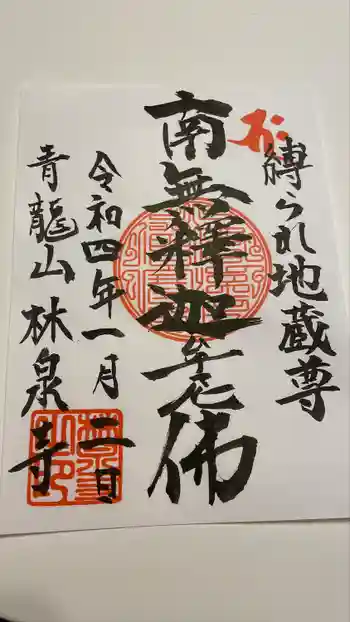 縛られ地蔵尊
南無釋迦牟尼佛
令和四年一月二日
青龍山林泉寺